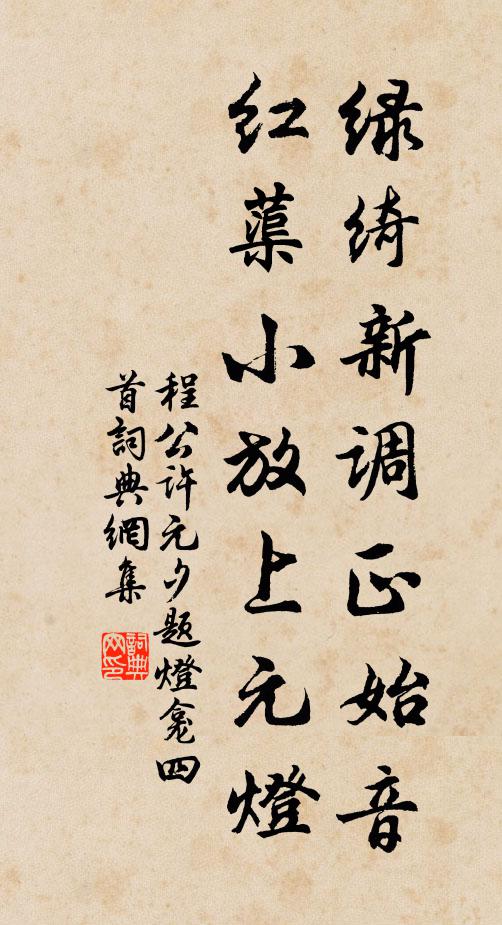 绿绮新调正始音
红蕖小放上元燈
程公许元夕题燈龛四
首詞典網集
詞典網印